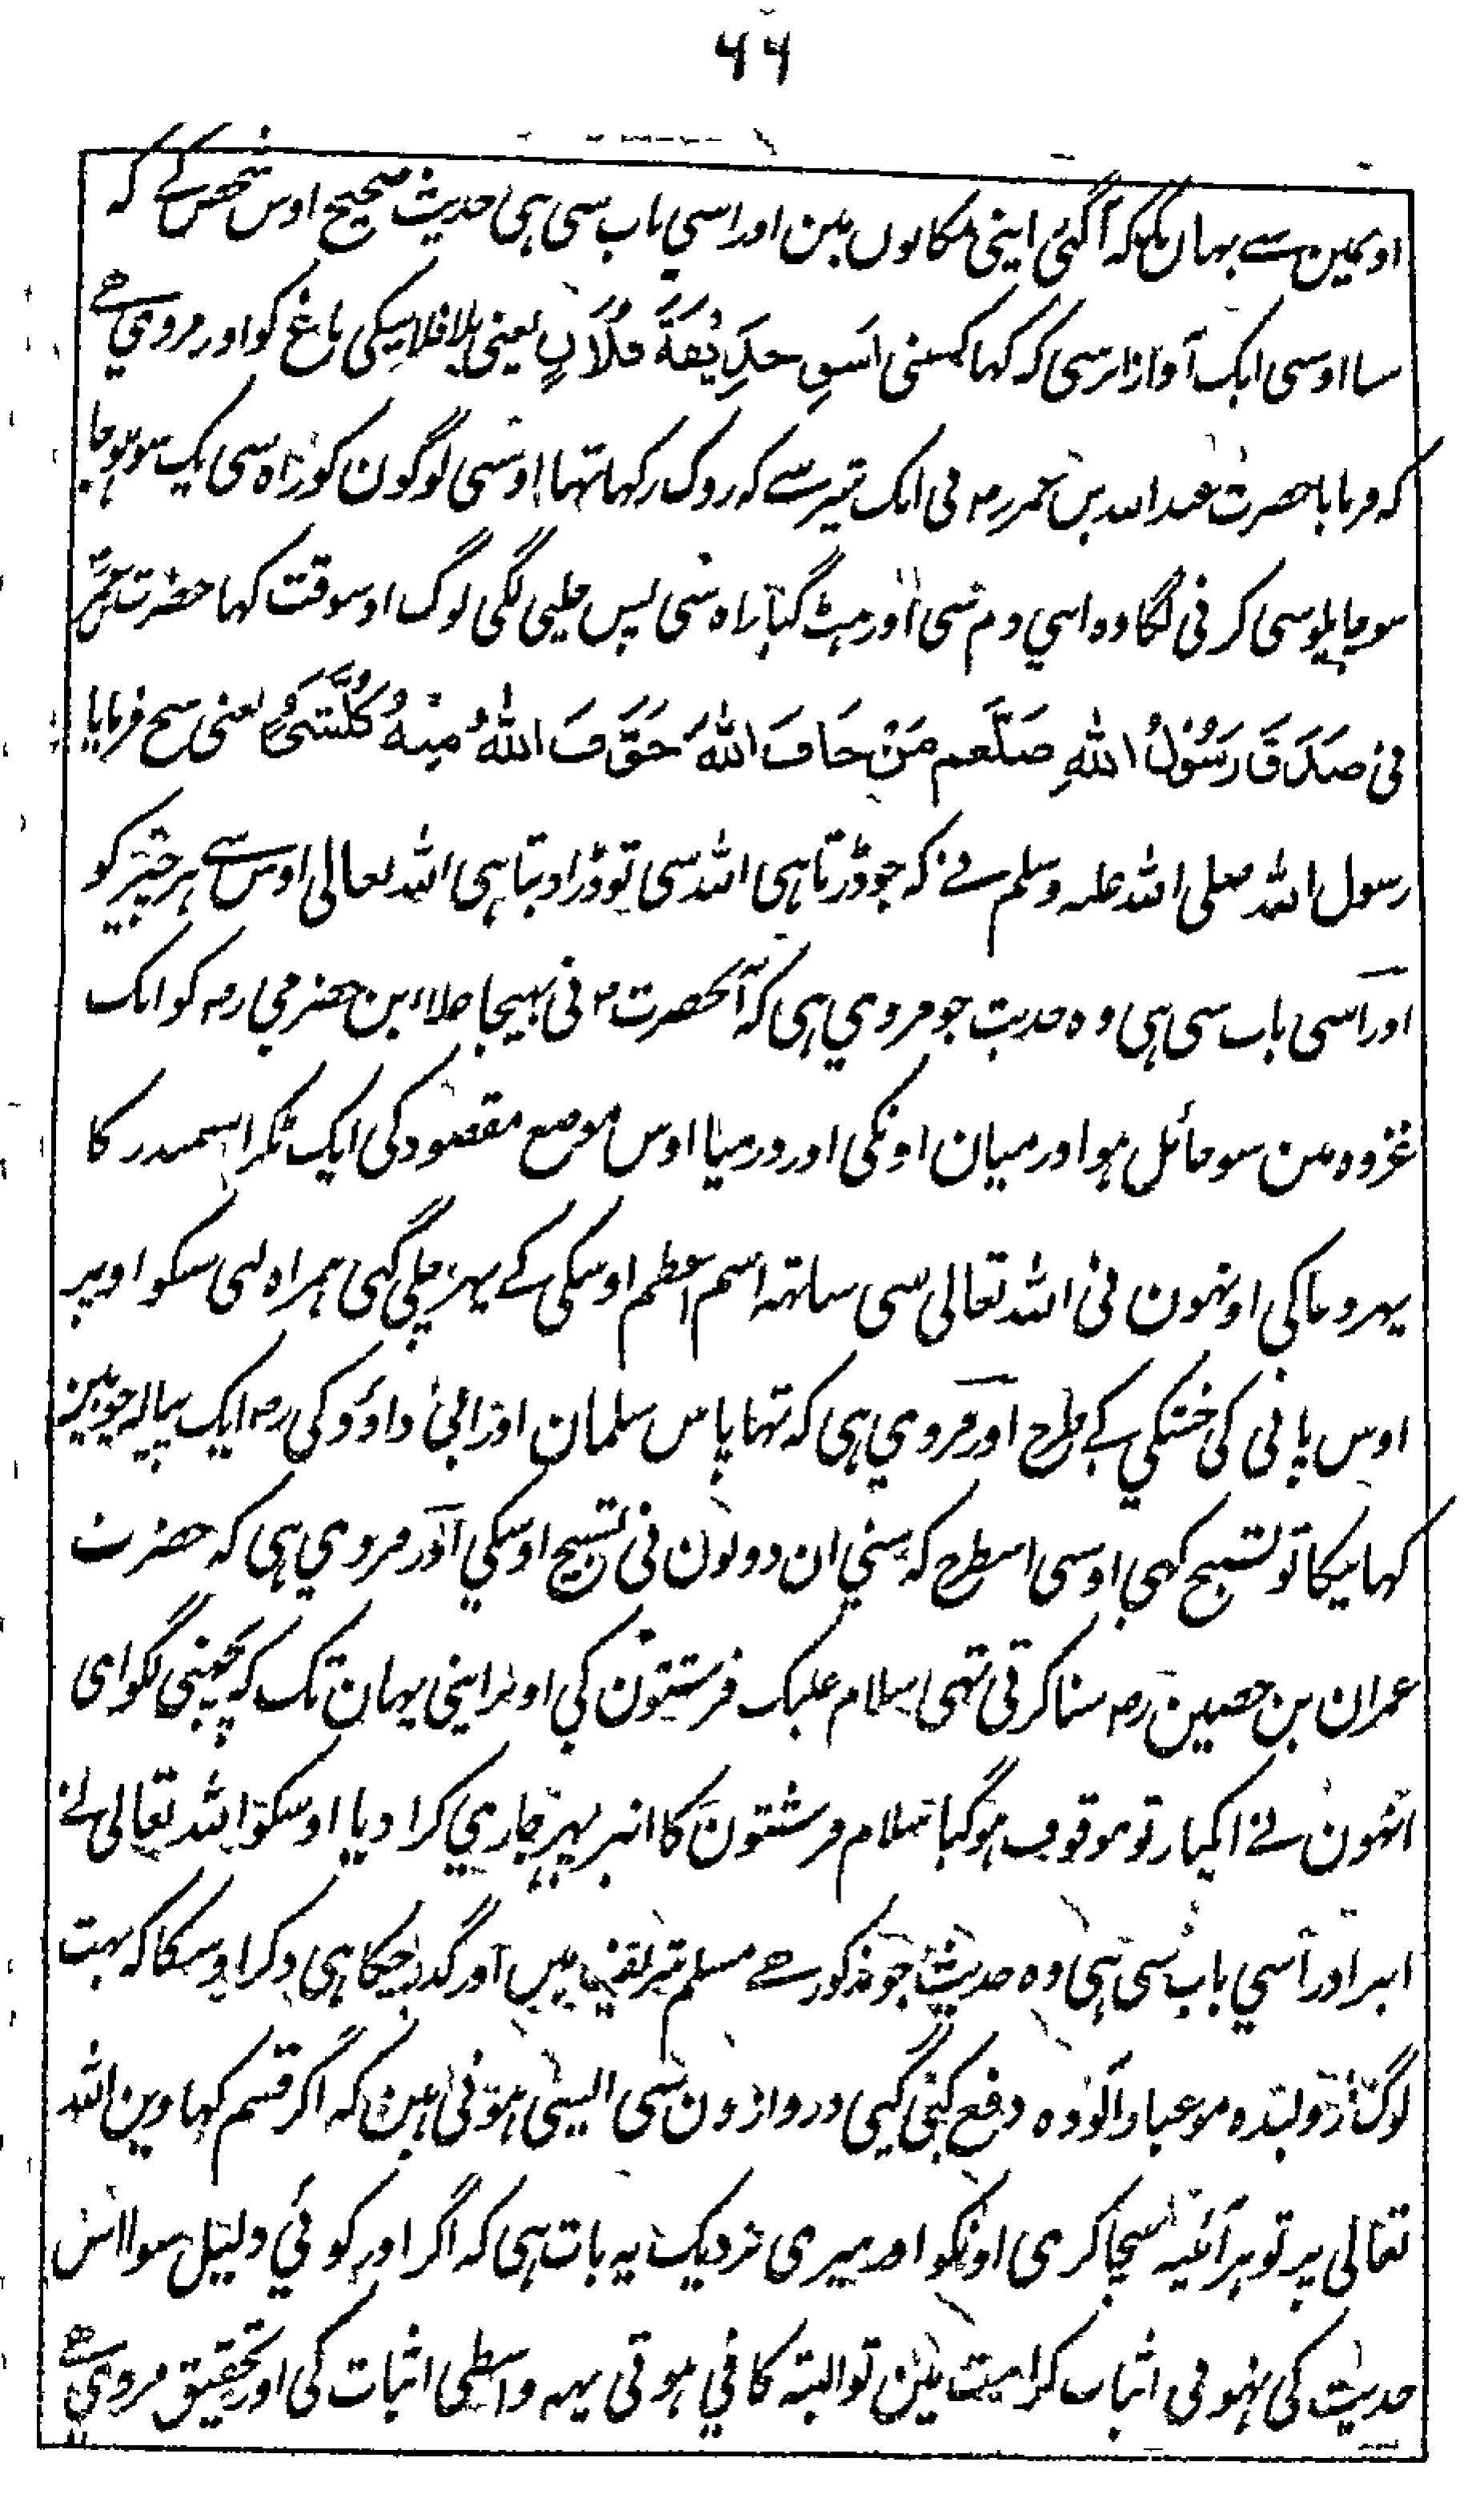 ۶۶
اونمین سے یہان تلک کہ آ گئی اپنی مکانوں میں اور اسی باب سی ہی حدیث صحیح اوس شخص کے کہ
سنا اوسی ایک آواز ابر سی کہ کہا کسینی اَسْقِ حَدِیْقَةَ فُلَانٍ یعنی پلا فلانیکی باغ کو اور مروی ہے
کہ فرمایا حضرت عبد اللہ بن عمر رضہ نی ایک شیر سے کہ روک رکہا تہا اوسنی لوگون کو راہ سی یک سو ہو جا
سو چاپلوسی کرنی لگا وہ اسی دم سی اور ہٹ گیا راہ سی پس چلنی لگی لوگ اوسوقت کہا حضرت عمر
نی صَدَقَ رَسُوْلُ اللّٰهِ صَلَّعم مَنْ خَافَ اللّٰهَ خَوَّفَ اللّٰهُ مِنْهُ کُلَّ شَیْءٍ یعنی سچ فرمایا
رسول اللہ صلی اللہ علیہ وسلم نے کہ جو ڈرتا ہی اللہ سی تو ڈرا دیتا ہی اللہ تعالی اوس سے ہر چیز کو
اور اسی باب سی ہی وہ حدیث جو مروی ہی کہ آنحضرت م نی بہیجا علاء بن حضرمی رضہ کو ایک
غزوہ مین سو حائل ہوا درمیان اونکی اور درمیان اوس موضع مقصود کی ایک ٹکرا سمندر کا
پہر دعا کی اونہون نی اللہ تعالی سی ساتہہ اسم اعظم اوسکی کے پہر چلی گئی ہمراہ سی سکو اوپر
اوس پانی کی خشکی کے طرح اور مروی ہی کہ تہا پاس سلمان اور ابی داؤد کی رضہ ایک پیالہ جو مین
کہانیکا تو تسبیح کہی اوسی اسطرح کہ سنی ان دونون نی تسبیح اوسکی اور مروی ہی کہ حضرت
عمران بن حصین رضہ سنا کرتی تہی اسلام علیک فرشتون کی اوپر اپنی یہان تک کہ پچہنی لگوای
انہون نے ایکبار تو موقوف ہو گیا سلام فرشتون کا انپر پہر جاری کرا دیا اوسکو اللہ تعالی نے
انپر اور اسی باب سی ہی وہ حدیث جو مذکور ہے مسلم شریف میں اور گذر چکا ہی ذکر اوسکا کہ بہت
لوگ ژولیدہ مو غبار آلودہ دفع کئی گیی دروازون سی ایسی ہوتی ہین کہ اگر قسم کہاوین اللہ
تعالی پر تو ہر آئینہ سچا کری اونکو اور میری نزدیک یہ بات ہی کہ اگر اور کوئی دلیل سوا اس
حدیث کی نہوتی اثبات کرامت مین تو البتہ کافی ہوتی یہہ واسطی اثبات کی اور تحقیق مروی ہے